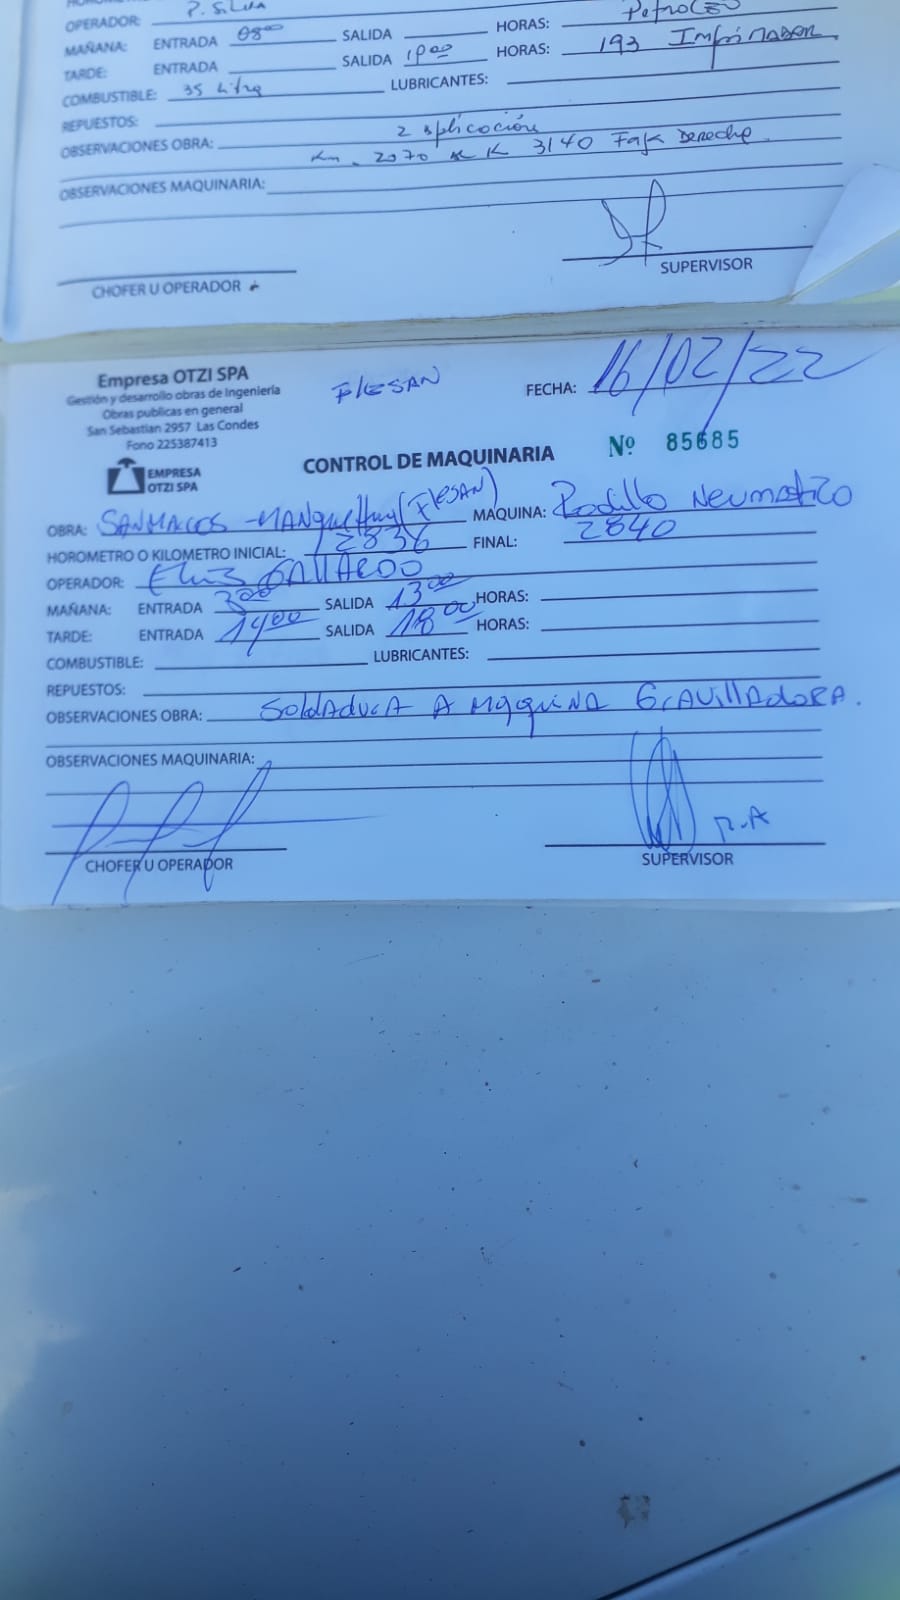 OPERADOR: P. Silva
MAÑANA: ENTRADA 08⁰⁰ SALIDA HORAS: Petroleo
TARDE: ENTRADA SALIDA 19⁰⁰ HORAS: 193 Imprimador
COMBUSTIBLE: 35 Litrq LUBRICANTES:
REPUESTOS:
OBSERVACIONES OBRA: 2 aplicación
Km. 2070 K 3140 Faja Derecha
OBSERVACIONES MAQUINARIA:
CHOFER U OPERADOR
SUPERVISOR
Empresa OTZI SPA
Gestión y desarrollo obras de Ingeniería
Obras publicas en general
San Sebastian 2957 Las Condes
Fono 225387413
EMPRESA
OTZI SPA
FlESAN
FECHA: 16/02/22
CONTROL DE MAQUINARIA
Nº 85685
OBRA: SANMACOS - (FlESAN) MAQUINA: Rodillo Neumatico
HOROMETRO O KILOMETRO INICIAL: 2836 FINAL: 2840
OPERADOR: GALLARDO
MAÑANA: ENTRADA SALIDA 13⁰⁰ HORAS:
TARDE: ENTRADA 14⁰⁰ SALIDA 18⁰⁰ HORAS:
COMBUSTIBLE: LUBRICANTES:
REPUESTOS:
OBSERVACIONES OBRA: SoldaducA A MAquiNA GrAVillAdoRA.
OBSERVACIONES MAQUINARIA:
CHOFER U OPERADOR
P.A
SUPERVISOR